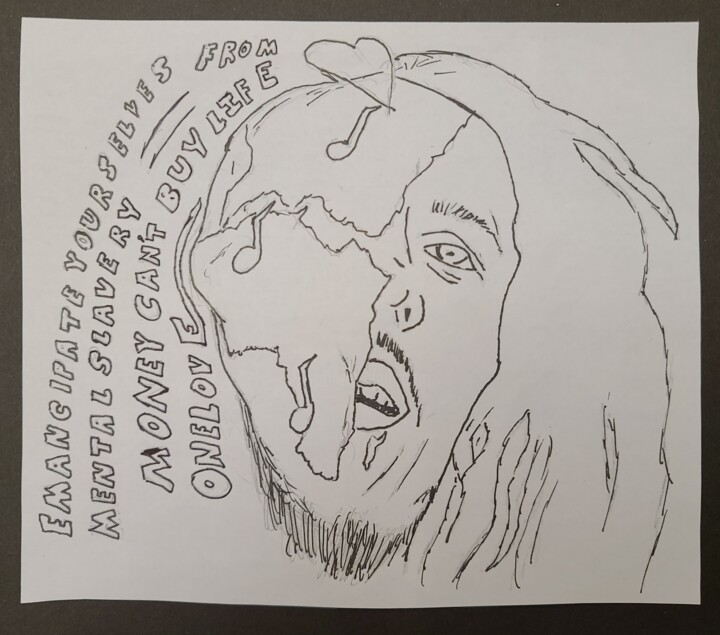 EMANCIPATE YOURSELVES FROM
MENTAL SLAVERY
MONEY CAN'T BUY LIFE
ONELOVE